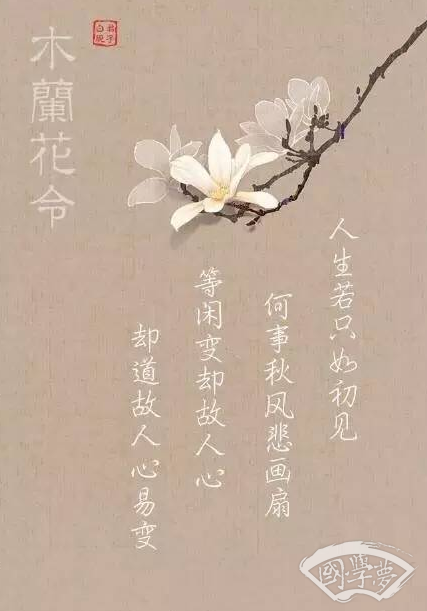 木蘭花令
人生若只如初见
何事秋风悲画扇
等闲变却故人心
却道故人心易变
國學夢